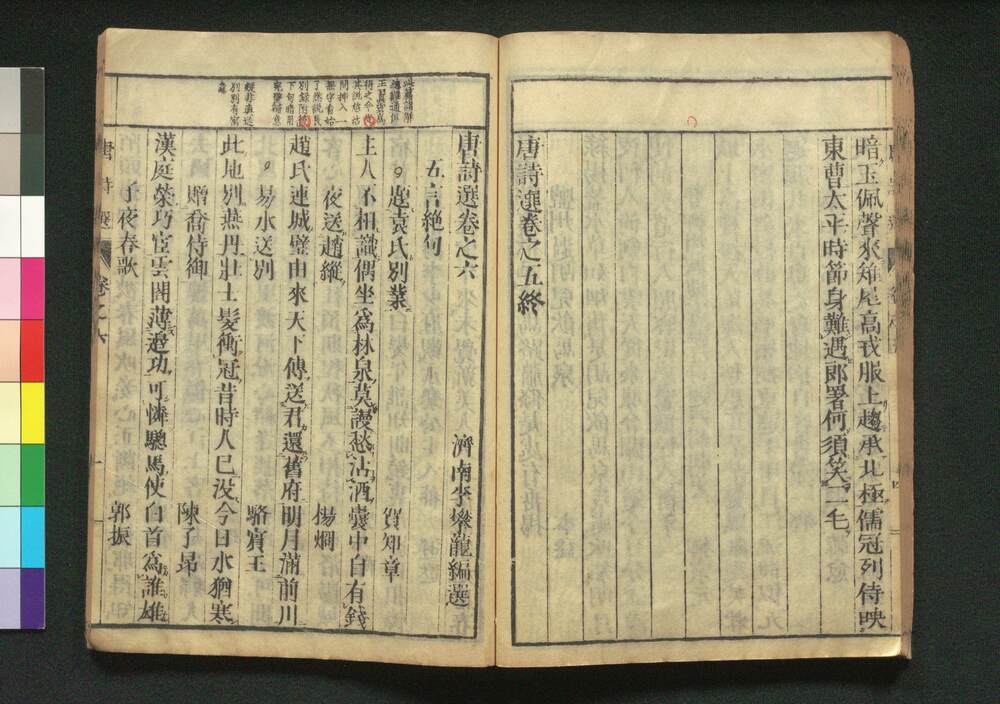 暗玉佩聲來雉尾高戎服上趨承北極儒冠列侍映
東曹太平時節身難遇郎署何須笑二毛
唐詩選卷之五終
唐詩選卷之六
濟南李攀龍編選
五言絕句
題袁氏別業
賀知章
主人不相識偶坐爲林泉莫謾愁沽酒囊中自有錢
夜送趙縱
楊烱
趙氏連城璧由來天下傳送君還舊府明月滿前川
易水送別
駱賓王
此地別燕丹壯士髮衝冠昔時人已没今日水猶寒
贈喬侍御
陳子昂
漢庭榮巧宦雲閣薄邊功可憐驄馬使白首爲誰雄
子夜春歌
郭振
唐詩選
卷之六